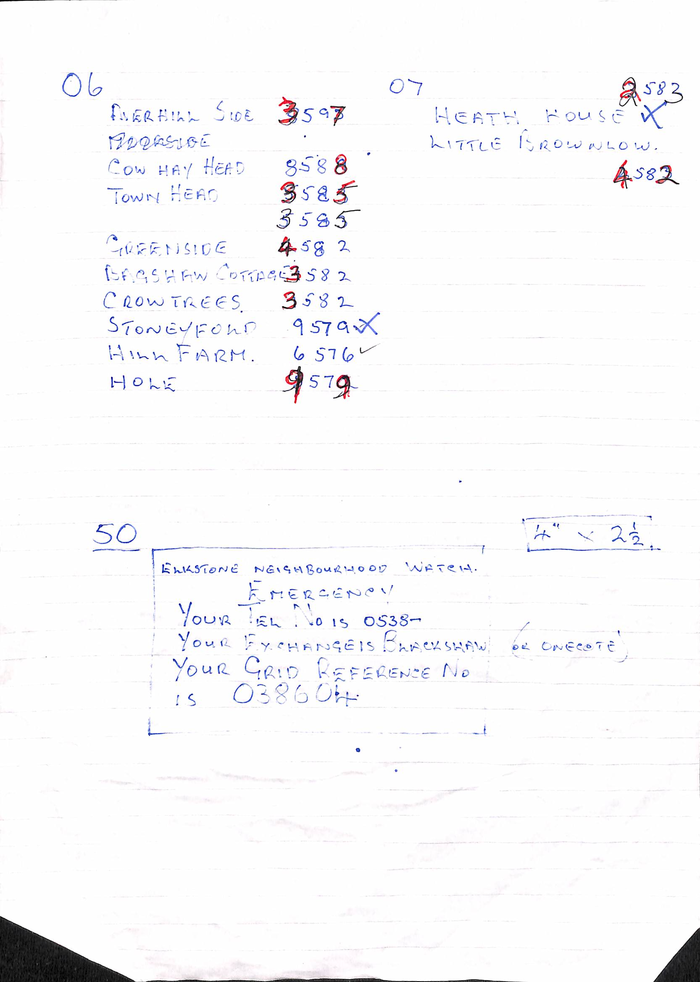 06
OVERHILL SIDE 3597
MOORSIDE
COW HAY HEAD 8588
TOWN HEAD 3585
3585
GREENSIDE 4582
BAGSHAW COTTAGE 3582
CROWTREES. 3582
STONEYFOLD 9579 X
HILL FARM. 6576 ✓
HOLE 9579
07
2583
HEATH HOUSE X
LITTLE BROWNLOW.
4582
50
4" × 2½.
ELKSTONE NEIGHBOURHOOD WATCH.
EMERGENCY
YOUR TEL NO IS 0538-
YOUR EXCHANGE IS BLACKSHAW (OR ONECOTE)
YOUR GRID REFERENCE NO
IS 038604